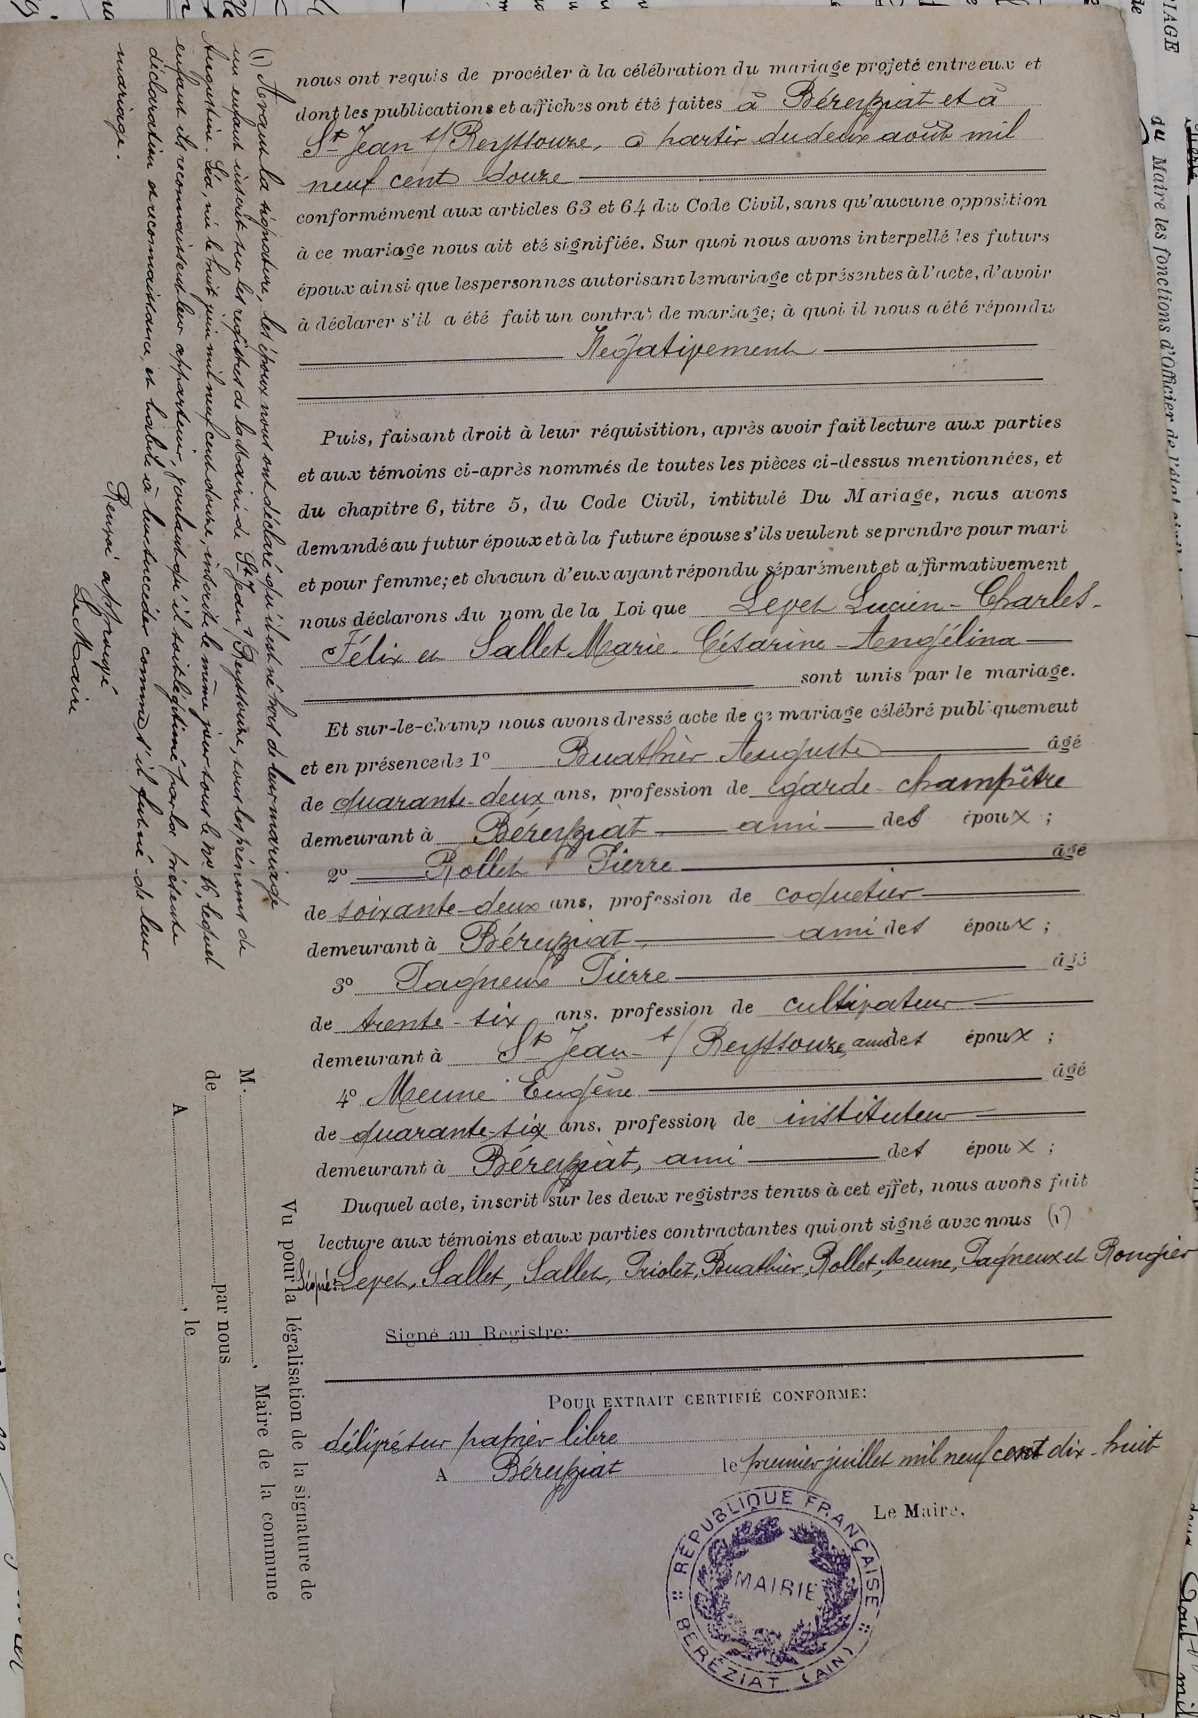 nous ont requis de procéder à la célébration du mariage projeté entre eux et
dont les publications et affiches ont été faites à Béreyziat et à
St Jean s/ Reyssouze, à partir du deux août mil
neuf cent douze
conformément aux articles 63 et 64 du Code Civil, sans qu'aucune opposition
à ce mariage nous ait eté signifiée. Sur quoi nous avons interpellé les futurs
époux ainsi que les personnes autorisant le mariage et présentes à l'acte, d'avoir
à déclarer s'il a été fait un contrat de mariage; à quoi il nous a été répondu
Négativement
Puis, faisant droit à leur réquisition, après avoir fait lecture aux parties
et aux témoins ci-après nommés de toutes les pièces ci-dessus mentionnées, et
du chapitre 6, titre 5, du Code Civil, intitulé Du Mariage, nous avons
demandé au futur époux et à la future épouse s'ils veulent se prendre pour mari
et pour femme; et chacun d'eux ayant répondu séparément et affirmativement
nous déclarons Au nom de la Loi que Levet Lucien-Charles-
Félix et Sallet Marie-Césarine-Angélina
sont unis par le mariage.
Et sur-le-champ nous avons dressé acte de ce mariage célébré publiquement
et en présence de 1º Buathier Auguste âgé
de quarante-deux ans, profession de garde-champêtre
demeurant à Béreyziat ami des époux ;
2º Rollet Pierre âgé
de soixante-deux ans, profession de coquetier
demeurant à Béreyziat, ami des époux ;
3º Pagneux Pierre âgé
de trente-six ans. profession de cultivateur
demeurant à St Jean-s/ Reyssouze, ami des époux ;
4º Meune Eugène âgé
de quarante-six ans, profession de instituteur
demeurant à Béreyziat, ami des époux ;
Duquel acte, inscrit sur les deux registres tenus à cet effet, nous avons fait
lecture aux témoins et aux parties contractantes qui ont signé avec nous (1)
Signé: Levet, Sallet, Sallet, Priolet, Buathier, Rollet, Meune, Pagneux et Rongier
Signé au Registre:
POUR EXTRAIT CERTIFIÉ CONFORME:
délivré sur papier libre
A Béreyziat le premier juillet mil neuf cent dix-huit
Le Maire,
RÉPUBLIQUE FRANÇAISE
MAIRIE
BEREZIAT (AIN)
(1) Avant la signature, les époux nous ont déclaré qu'il est né hors de leur mariage
un enfant inscrit sur les registres de la Mairie de St Jean s/ Reyssouze, sous les prénoms de
Augustine-Léa, née le huit juin mil neuf cent douze, inscrite le même jour sous le nº 16, lequel
enfant ils reconnaissent leur appartenir, voulant qu'il soit légitimé par la présente
déclaration et reconnaissance, et habile à leur succéder comme s'il fut né de leur
mariage.
Renvoi approuvé
Le Maire
Vu pour la légalisation de la signature de
M. , Maire de la commune
de par nous
A , le
IAGE
de
du Maire les fonctions d'Officier de l'état